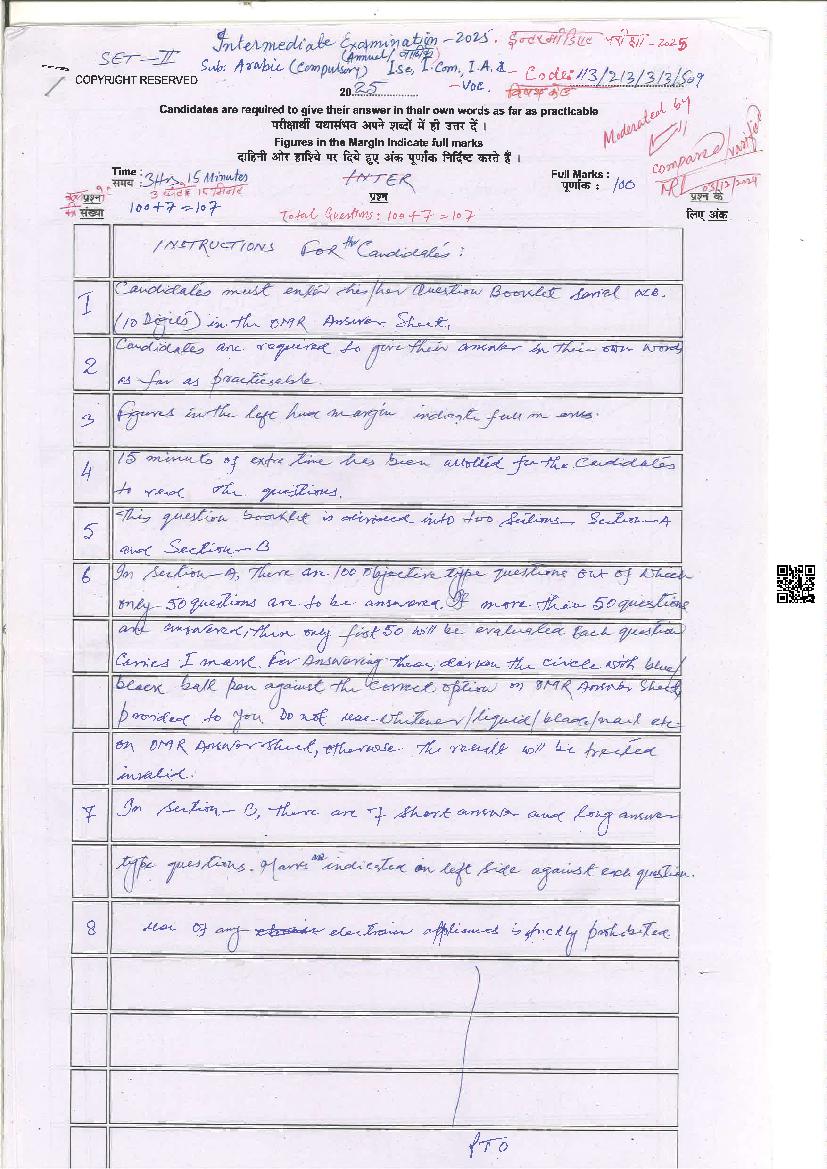 SET-II
Intermediate Examination-2025. इन्टरमीडिएट परीक्षा-2025
(Annual/वार्षिक)
Sub: Arabic (Compulsory) I.Sc, I.Com, I.A &
-Voc.
Code: 113/213/313/509
विषय कोड
COPYRIGHT RESERVED
2025
Candidates are required to give their answer in their own words as far as practicable
परीक्षार्थी यथासंभव अपने शब्दों में ही उत्तर दें ।
Figures in the Margin Indicate full marks
दाहिनी ओर हाशिये पर दिये हुए अंक पूर्णांक निर्दिष्ट करते हैं ।
Moderated by
compared/verified
03/12/2024
Time : 3Hrs. 15 Minutes
समय : 3 घंटे 15 मिनट
INTER
Full Marks :
पूर्णांक : 100
प्रश्न
संख्या
100+7=107
प्रश्न
Total Questions: 100+7=107
प्रश्न के
लिए अंक
INSTRUCTIONS FOR the Candidates:
1 Candidates must enter his/her Question Booklet Serial No.
(10 Digits) in the OMR Answer Sheet.
2 Candidates are required to give their answer in their own words
as far as practicable.
3 Figures in the left hand margin indicate full marks.
4 15 minuts of extra time has been allotted for the Candidates
to read the questions.
5 This question booklet is divided into two Sections- Section-A
and Section-B
6 In Section-A, there are 100 objective type questions out of which
only 50 questions are to be answered. If more than 50 questions
are answered, then only first 50 will be evaluated Each question
Carries 1 mark. For Answering these, darken the circle with blue/
black ball pen against the correct option on OMR Answer Sheet
provided to you Do not use whitener/liquid/blade/nail etc
on OMR Answer Sheet, otherwise the result will be treated
invalid.
7 In Section-B, there are 7 short answer and long answer
type questions. Marks are indicated on left side against each question.
8 use of any electronic appliances is strictly prohibited
PTO